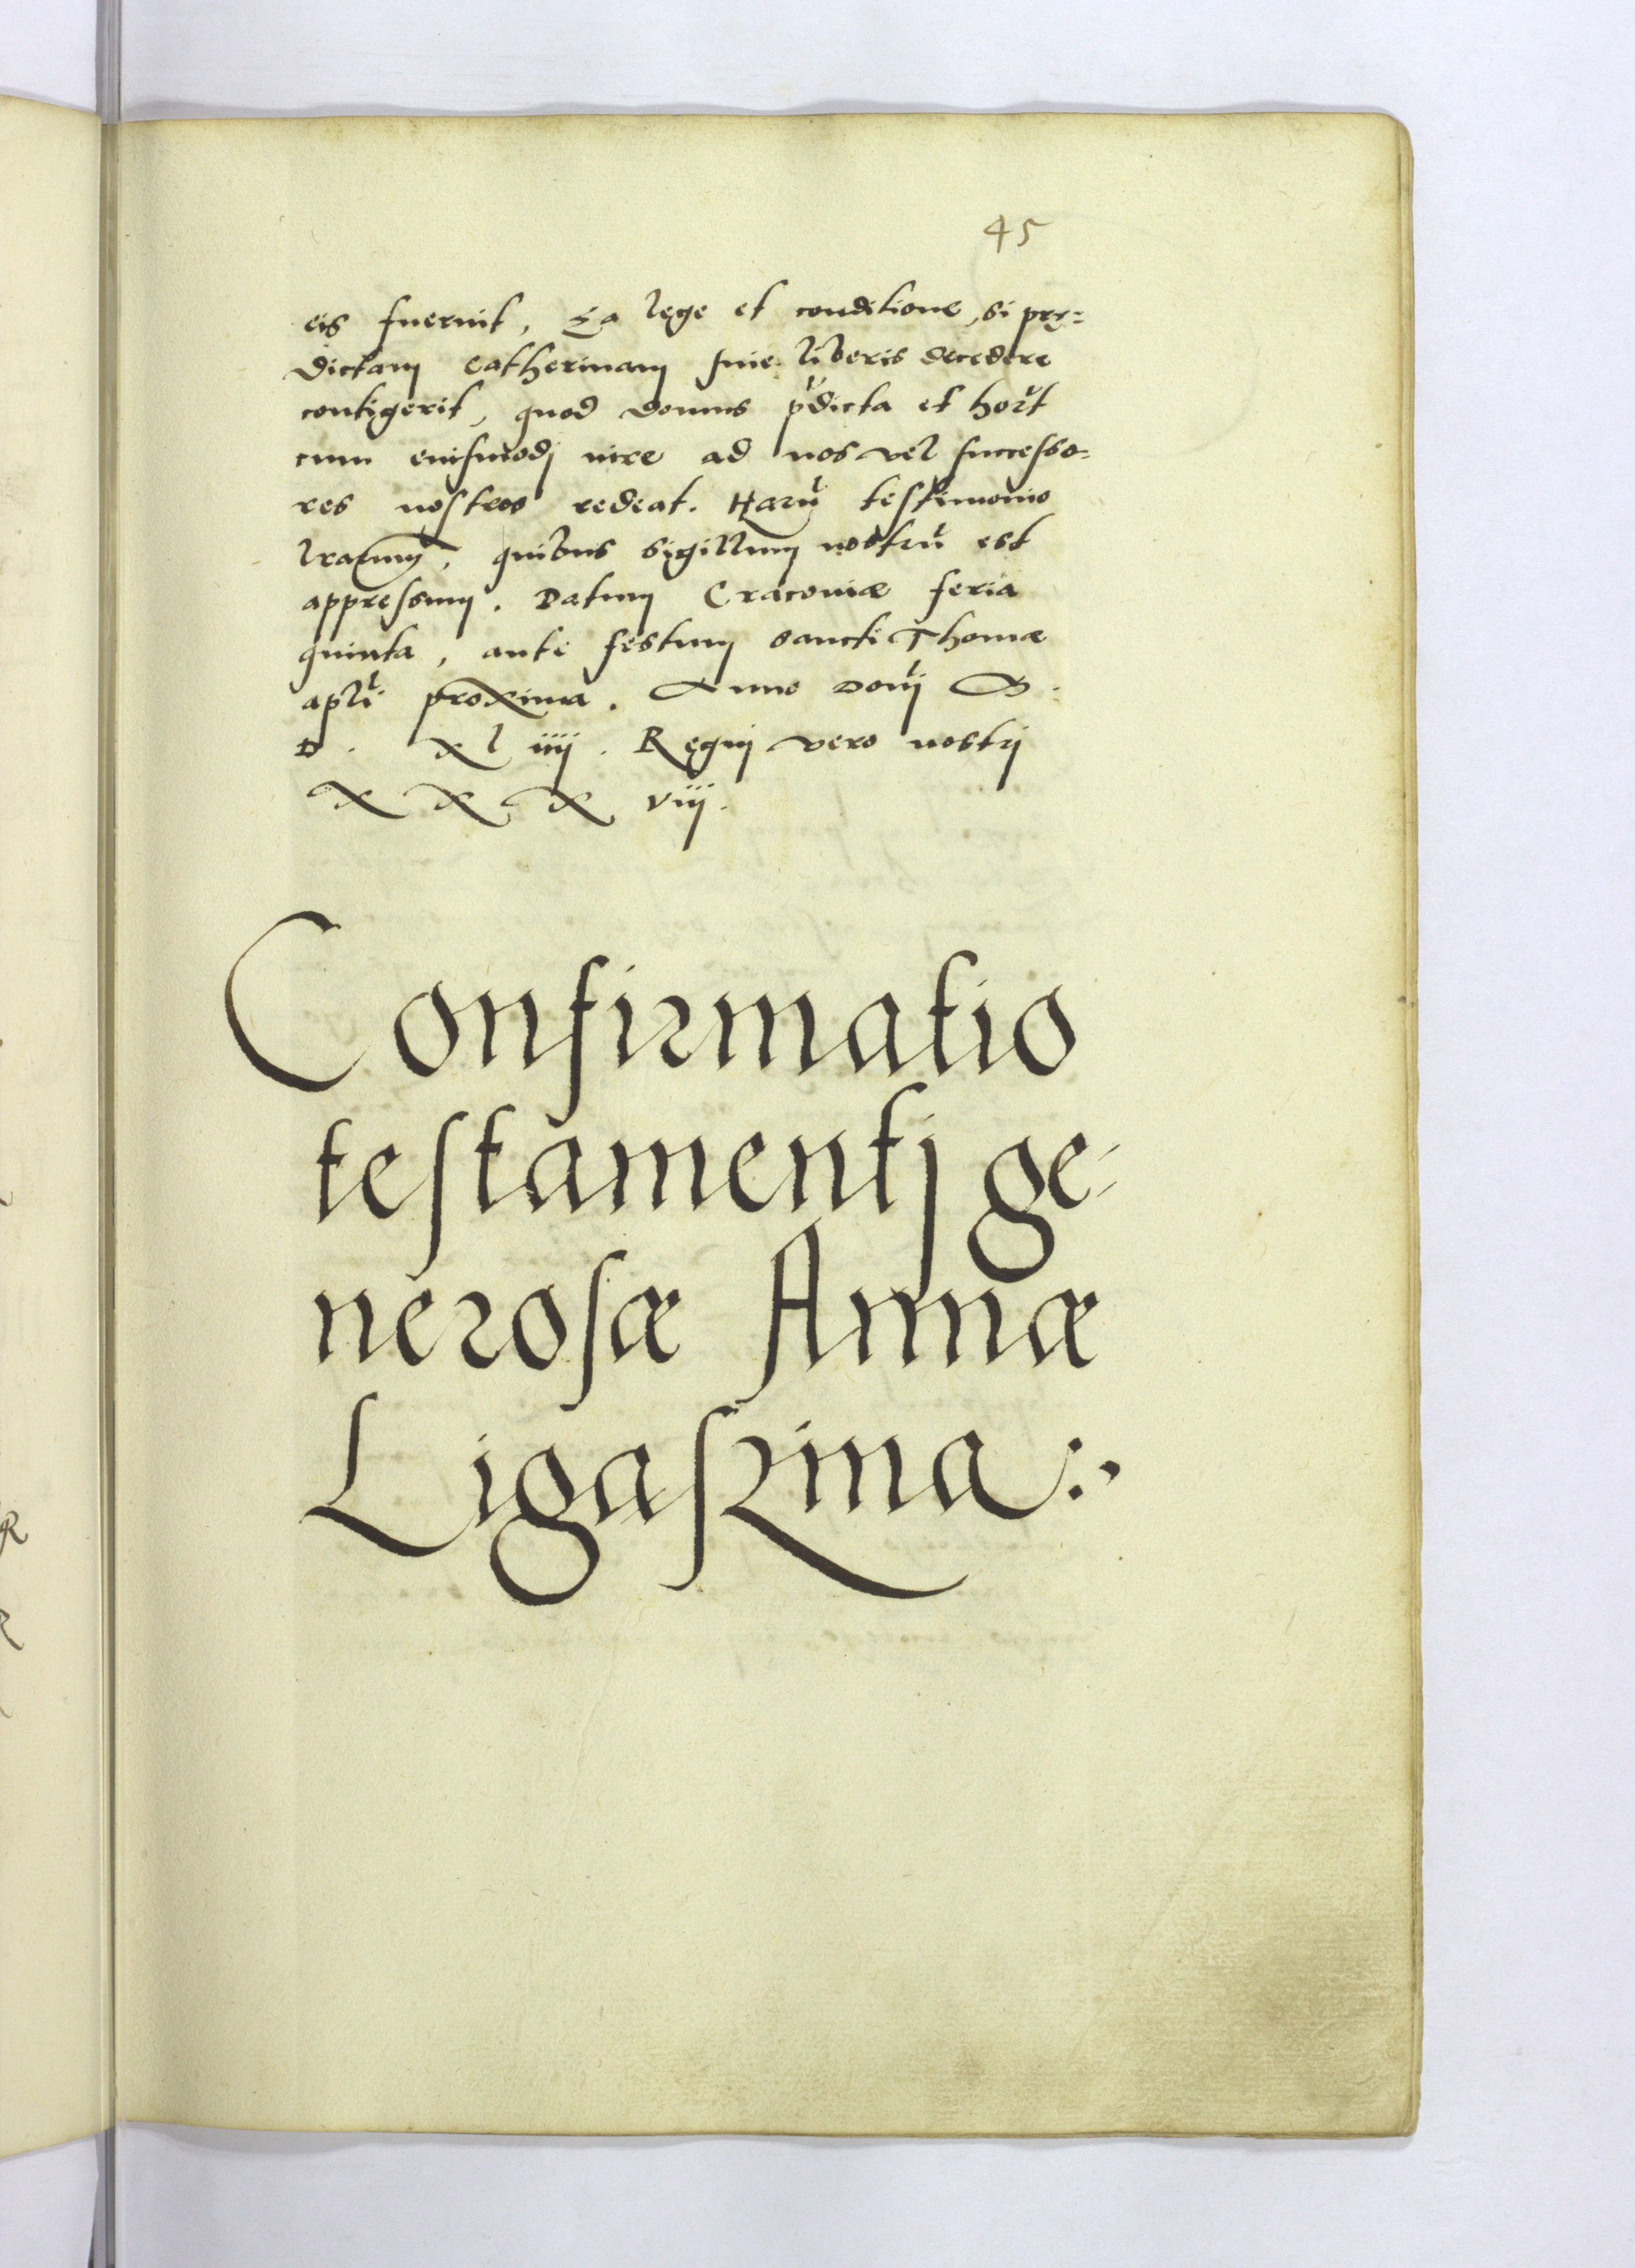 45
eis fuerint, Ea lege et conditione, si prę=
dictam Catherinam sine liberis decedere
contigerit, quod domus p̄dicta et hort
cum eiusmodj iure ad nos vel successo=
res nostros redeat. Harū testimonio
lrarum, quibus sigillum nostrū est
appressum. Datum Cracoviæ feria
quinta, ante festum sancti Thomæ
apli proxima. Anno Domj M.
D. xl iiij. Regnj vero nostrj
xxx viij.
Confirmatio
testamentj ge=
nerosæ Annæ
Ligaszina:,